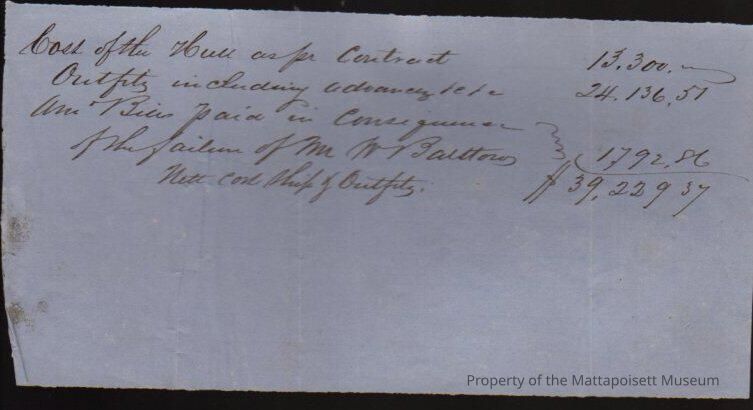 Cost of the Hull as pr Contract 13,300.—
Outfits including advance &c &c 24,136,51
Amt Bills paid in Consequence
of the failure of Mr W Barstow 1,792,86
Nett Cost Ship & Outfits. $39,229 37
Property of the Mattapoisett Museum